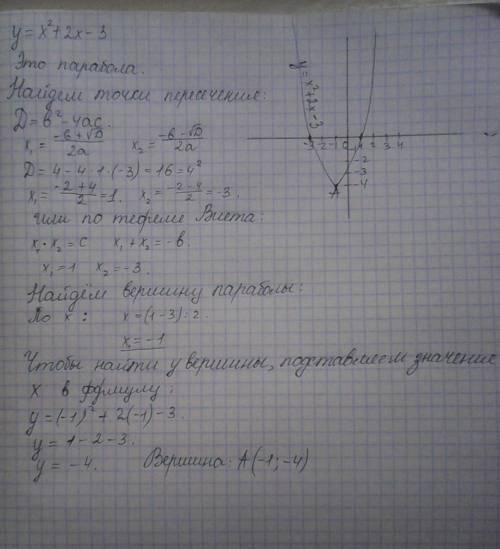 y = x² + 2x - 3
Это парабола.
Найдем точки пересечения:
D = b² - 4ac.
x₁ = (-b + √D)/2a   x₂ = (-b - √D)/2a
D = 4 - 4 · 1 · (-3) = 16 = 4²
x₁ = (-2 + 4)/2 = 1.   x₂ = (-2 - 4)/2 = -3.
или по теореме Виета:
x₁ · x₂ = c   x₁ + x₂ = -b.
x₁ = 1   x₂ = -3.
Найдём вершину параболы:
По x :   x = (1 - 3) : 2.
x = -1
Чтобы найти y вершины, подставляем значение
x в формулу:
y = (-1)² + 2(-1) - 3.
y = 1 - 2 - 3.
y = -4.   Вершина: A(-1; -4)
y = x² + 2x - 3
-3 -2 -1 0 1 2 3 4
-2
-3
-4
A